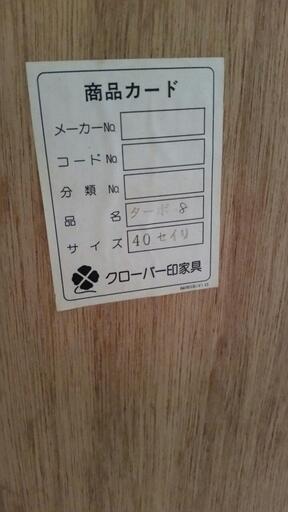 商品カード
メーカーNo.
コードNo.
分類No.
品名 ターボ 8
サイズ 40セイリ
クローバー印家具